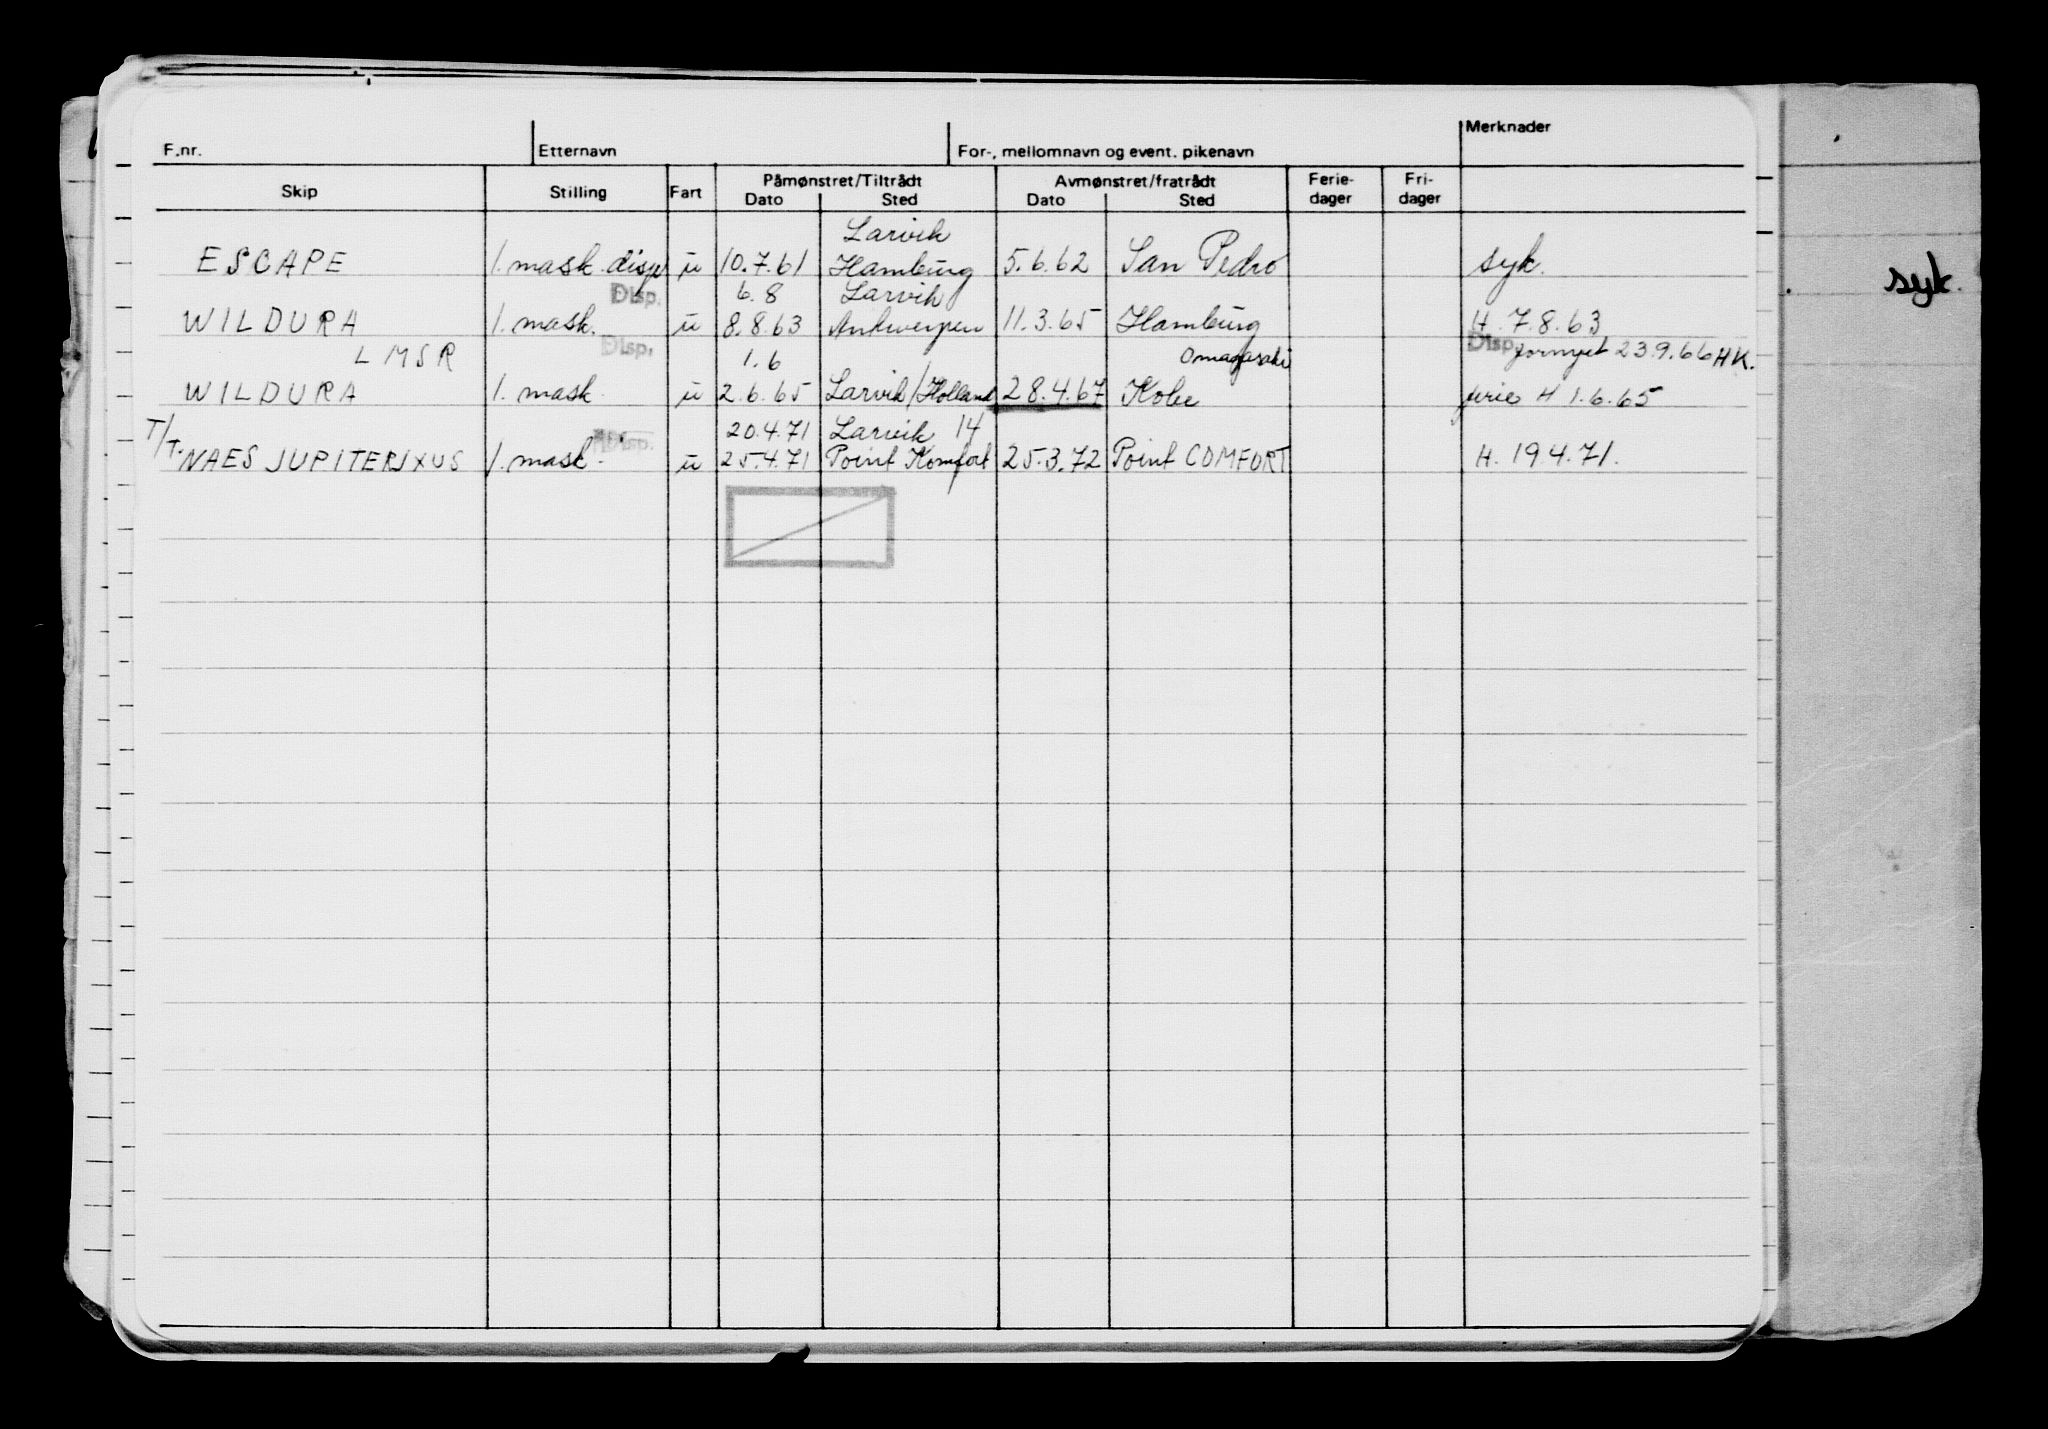 F.nr. Etternavn For-, mellomnavn og event. pikenavn Merknader
Skip Stilling Fart Påmønstret/Tiltrådt Avmønstret/fratrådt Ferie- Fri-
Dato Sted Dato Sted dager dager
Larvik
ESCAPE 1. mask. disp ū 10.7.61 Hamburg 5.6.62 San Pedro syk. syk.
Disp. 6.8 Larvik
WILDURA 1. mask. ū 8.8.63 Antwerpen 11.3.65 Hamburg H. 7.8.63
LMSR Disp. 1.6 Disp. fornyet 23.9.66 HK.
WILDURA 1. mask. ū 2.6.65 Larvik/Holland 28.4.67 Kobe ferie H 1.6.65
T/T. Disp. 20.4.71 Larvik 14
NAES JUPITER IXUS 1. mask. ū 25.4.71 Point Komfort 25.3.72 Point COMFORT H. 19.4.71.